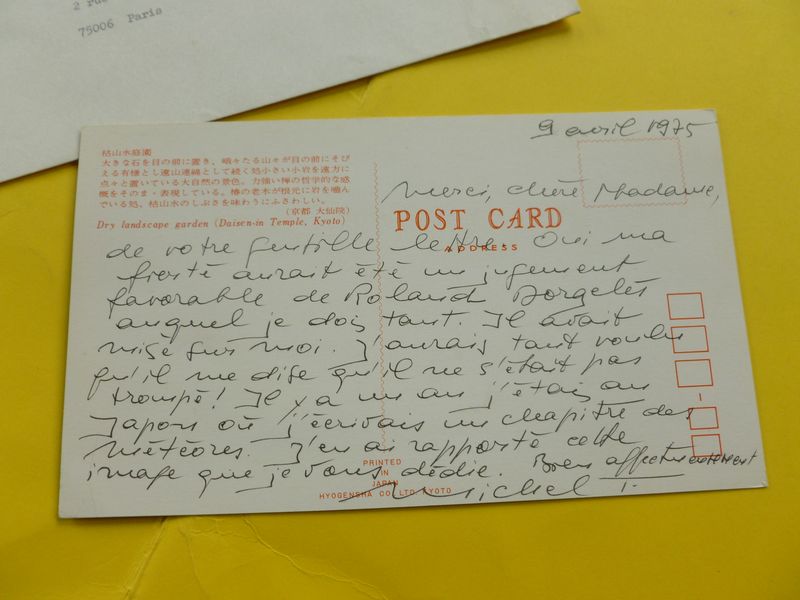 2 rue
75006 Paris
9 avril 1975
枯山水庭園
大きな石を目の前に置き、峨々たる山々が目の前にそび
える有様とし遠山連綿として続く処小さい小岩を遠方に
点々と置いている大自然の景色。力強い禅の哲学的な感
概をそのまゝ表現している。椿の老木が根元に岩を噛ん
でいる処、枯山水のしぶさを味わうにふさわしい。
(京都 大仙院)
Dry landscape garden (Daisen-in Temple, Kyoto)
Merci, chère Madame,
POST CARD
ADDRESS
de votre gentille lettre. Oui ma
fierté aurait été un jugement
favorable de Roland Dorgelès
auquel je dois tant. Il avait
misé sur moi. J'aurais tant voulu
qu'il me dise qu'il ne s'était pas
trompé! Il y a un an j'étais au
Japon où j'écrivais un chapitre des
météores. J'en ai rapporté cette
image que je vous dédie. Bien affectueusement
Michel T.
PRINTED
IN
JAPAN
HYOGENSHA CO., LTD. KYOTO